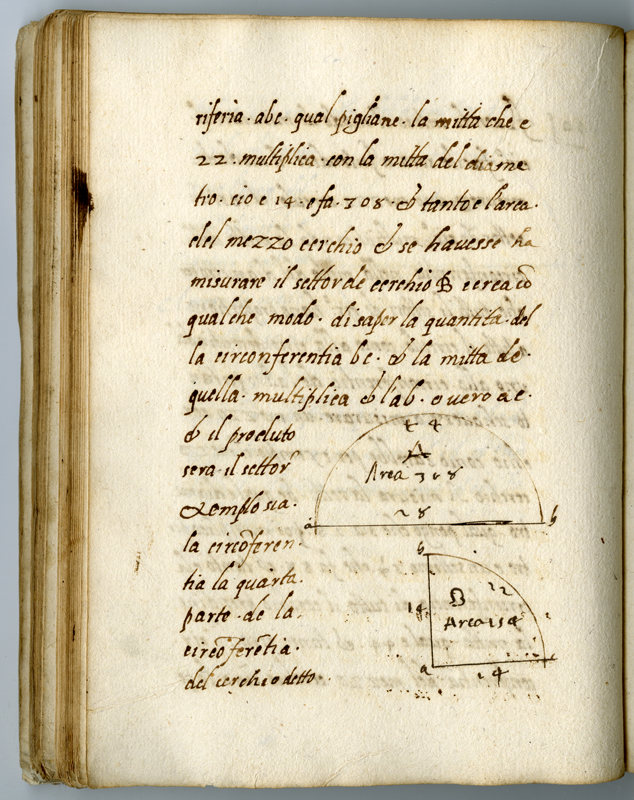 riferia. abc. qual pigliane. la mitta che e
22. multiplica con la mitta del diame
tro. cio e 14. e fa. 308. & tanto e l'area.
del mezzo cerchio & se havesse ha
misurare il settor de cerchio B cerca cõ
qualche modo. di saper la quantita. del
la circonferentia bc. & la mitta de.
quella. multiplica & l'ab. overo ac.
& il produto
sera. il settor
exemplo sia.
la circõferen.
tia la quarta.
parte. de la.
circõferẽtia.
del cerchio detto.
44
A
Area 308
28
a b
b
B 22
14
Area 154
a c
14